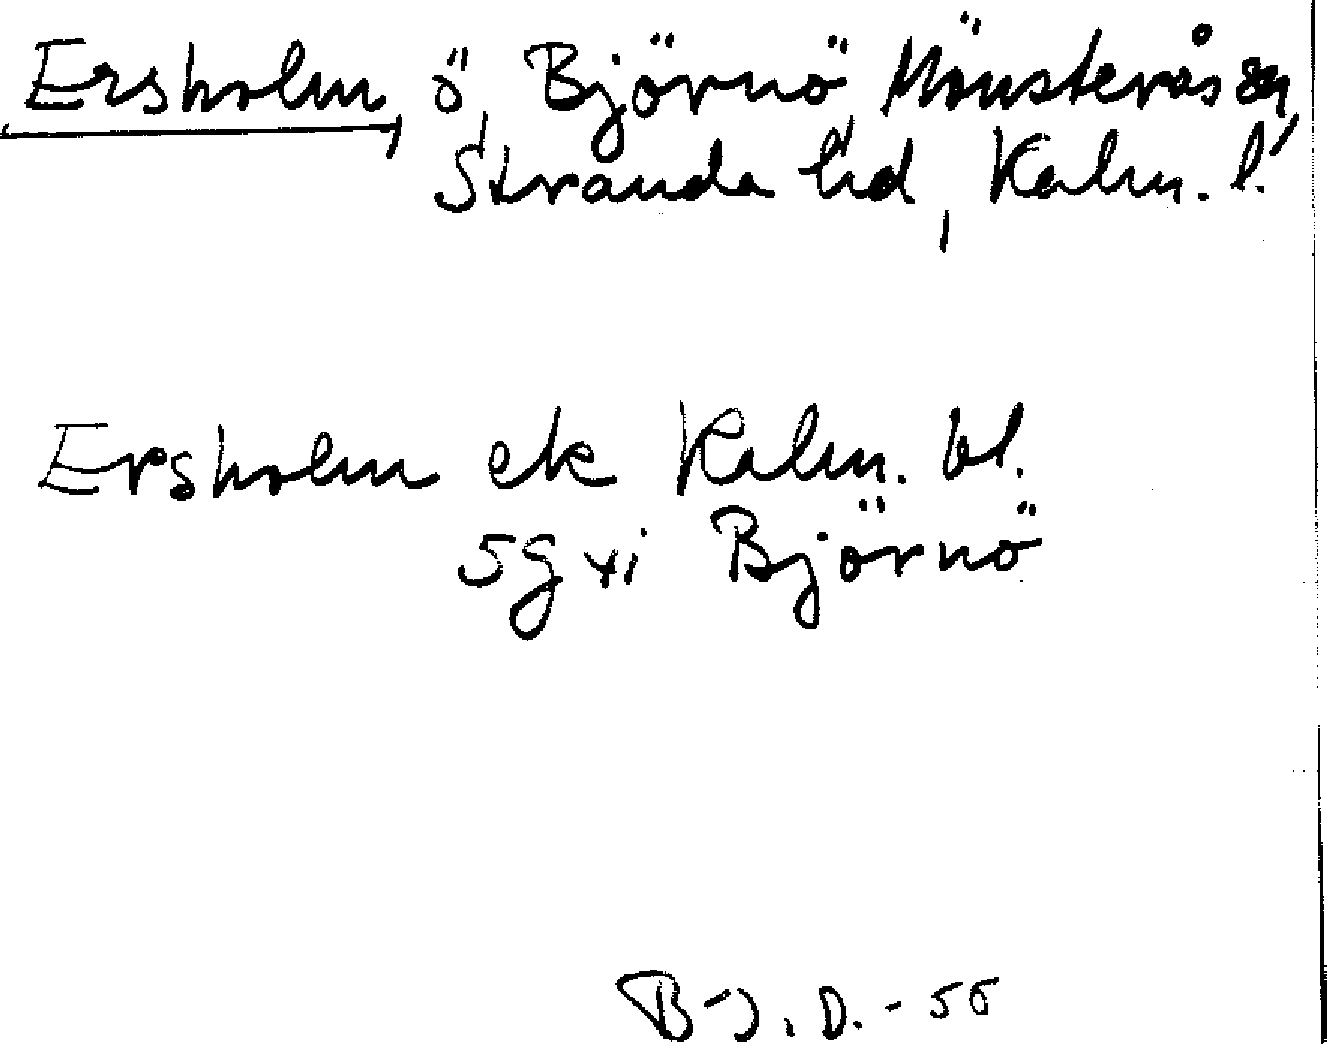 Ersholm, ö, Björnö, Mönsterås sn,
Stranda hd, Kalm. l.
Ersholm ek Kalm. bl.
5g xi Björnö
B-J. D. -55